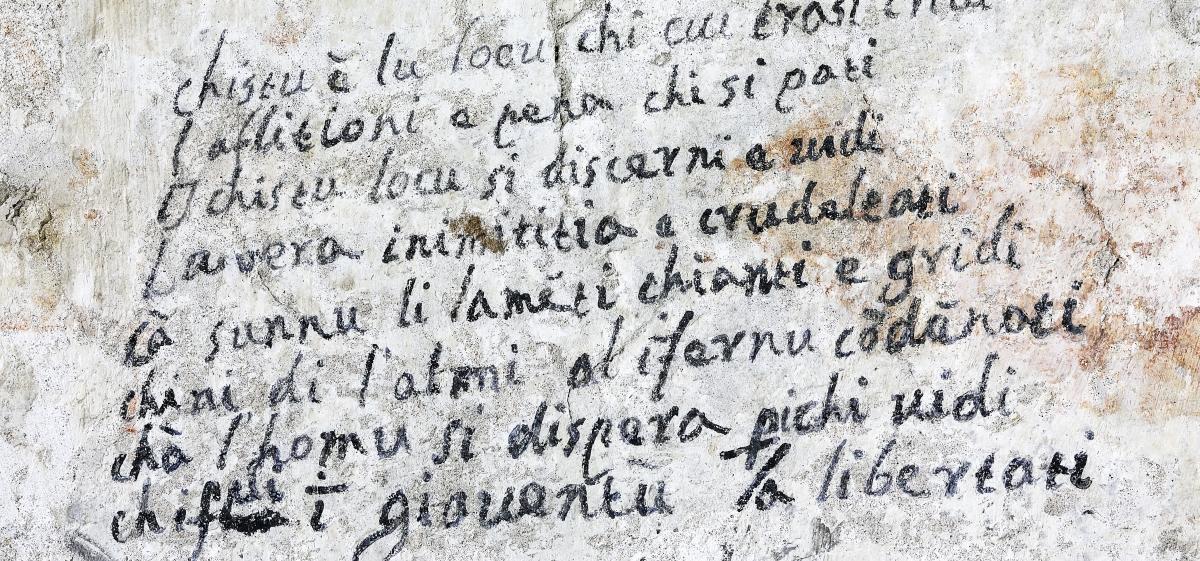 chistu è lu locu chi cui trasi
l'aflitioni e pena chi si pati
O chistu locu si discerni e uidi
La uera inimititia e crudeltati
cà sunnu li lamēti chianti e gridi
chini di l'almi al ifernu cōdānati
chà l'homu si dispera pichi uidi
ī giouentū la libertati